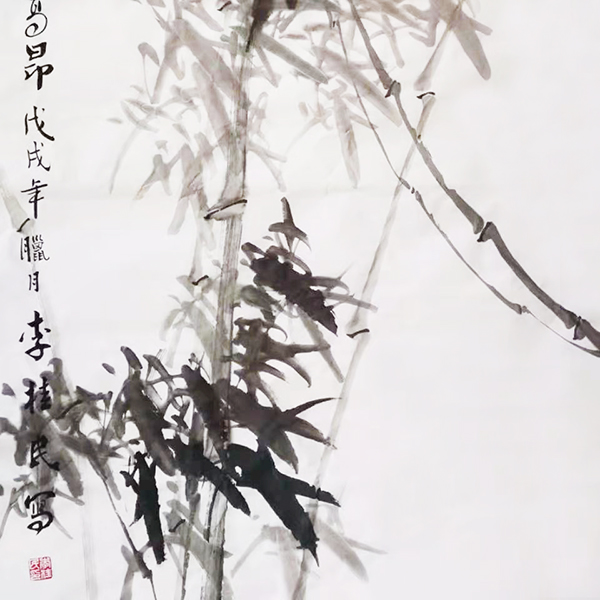 昂戊戌年臘月李桂民寫